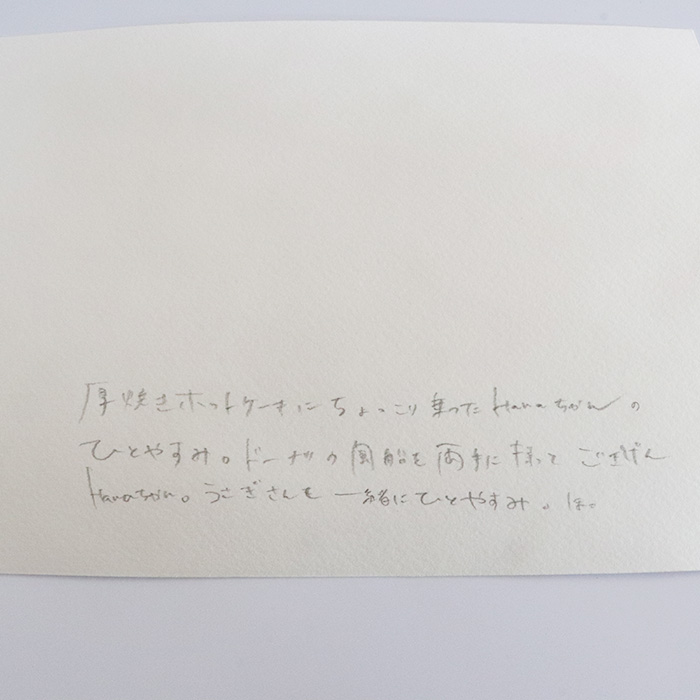 厚焼きホットケーキにちょっこり乗ったHanaちゃんの
ひとやすみ。ドーナツの風船を両手に持って ごきげん
Hanaちゃん。うさぎさんも 一緒にひとやすみ。ほっ